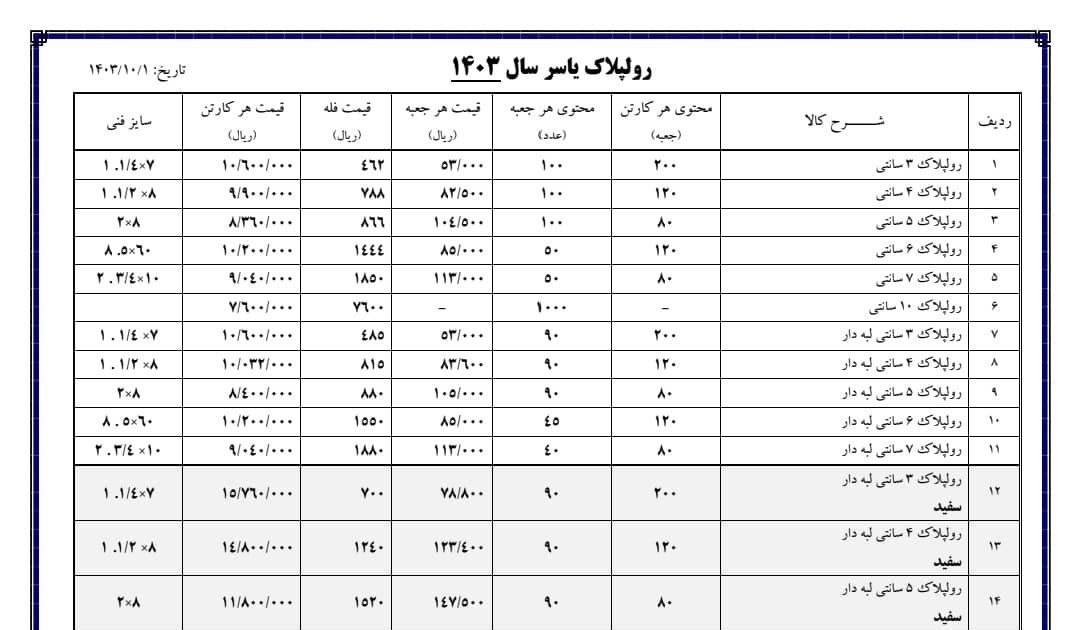 رولپلاک یاسر سال ۱۴۰۳
تاریخ: ۱۴۰۳/۱۰/۱
ردیف شـــــــرح کالا محتوی هر کارتن (جعبه) محتوی هر جعبه (عدد) قیمت هر جعبه (ریال) قیمت فله (ریال) قیمت هر کارتن (ریال) سایز فنی
۱ رولپلاک ۳ سانتی ۲۰۰ ۱۰۰ ٥۳/۰۰۰ ٤٦۲ ۱۰/٦۰۰/۰۰۰ ۱ .۱/٤×۷
۲ رولپلاک ۴ سانتی ۱۲۰ ۱۰۰ ۸۲/٥۰۰ ۷۸۸ ۹/۹۰۰/۰۰۰ ۱ .۱/۲ ×۸
۳ رولپلاک ۵ سانتی ۸۰ ۱۰۰ ۱۰٤/٥۰۰ ۸٦٦ ۸/۳٦۰/۰۰۰ ۲×۸
۴ رولپلاک ۶ سانتی ۱۲۰ ٥۰ ۸٥/۰۰۰ ۱٤٤٤ ۱۰/۲۰۰/۰۰۰ ۸ .٥×٦۰
۵ رولپلاک ۷ سانتی ۸۰ ٥۰ ۱۱۳/۰۰۰ ۱۸٥۰ ۹/۰٤۰/۰۰۰ ۲ . ۳/٤×۱۰
۶ رولپلاک ۱۰ سانتی – ۱۰۰۰ – ۷٦۰۰ ۷/٦۰۰/۰۰۰
۷ رولپلاک ۳ سانتی لبه دار ۲۰۰ ۹۰ ٥۳/۰۰۰ ٤۸٥ ۱۰/٦۰۰/۰۰۰ ۱ . ۱/٤ ×۷
۸ رولپلاک ۴ سانتی لبه دار ۱۲۰ ۹۰ ۸۳/٦۰۰ ۸۱٥ ۱۰/۰۳۲/۰۰۰ ۱ . ۱/۲ ×۸
۹ رولپلاک ۵ سانتی لبه دار ۸۰ ۹۰ ۱۰٥/۰۰۰ ۸۸۰ ۸/٤۰۰/۰۰۰ ۲×۸
۱۰ رولپلاک ۶ سانتی لبه دار ۱۲۰ ٤٥ ۸٥/۰۰۰ ۱٥٥۰ ۱۰/۲۰۰/۰۰۰ ۸ . ٥×٦۰
۱۱ رولپلاک ۷ سانتی لبه دار ۸۰ ٤۰ ۱۱۳/۰۰۰ ۱۸۸۰ ۹/۰٤۰/۰۰۰ ۲ . ۳/٤ ×۱۰
۱۲ رولپلاک ۳ سانتی لبه دار سفید ۲۰۰ ۹۰ ۷۸/۸۰۰ ۷۰۰ ۱٥/۷٦۰/۰۰۰ ۱ .۱/٤×۷
۱۳ رولپلاک ۴ سانتی لبه دار سفید ۱۲۰ ۹۰ ۱۲۳/٤۰۰ ۱۲٤۰ ۱٤/۸۰۰/۰۰۰ ۱ .۱/۲ ×۸
۱۴ رولپلاک ۵ سانتی لبه دار سفید ۸۰ ۹۰ ۱٤۷/٥۰۰ ۱٥۲۰ ۱۱/۸۰۰/۰۰۰ ۲×۸